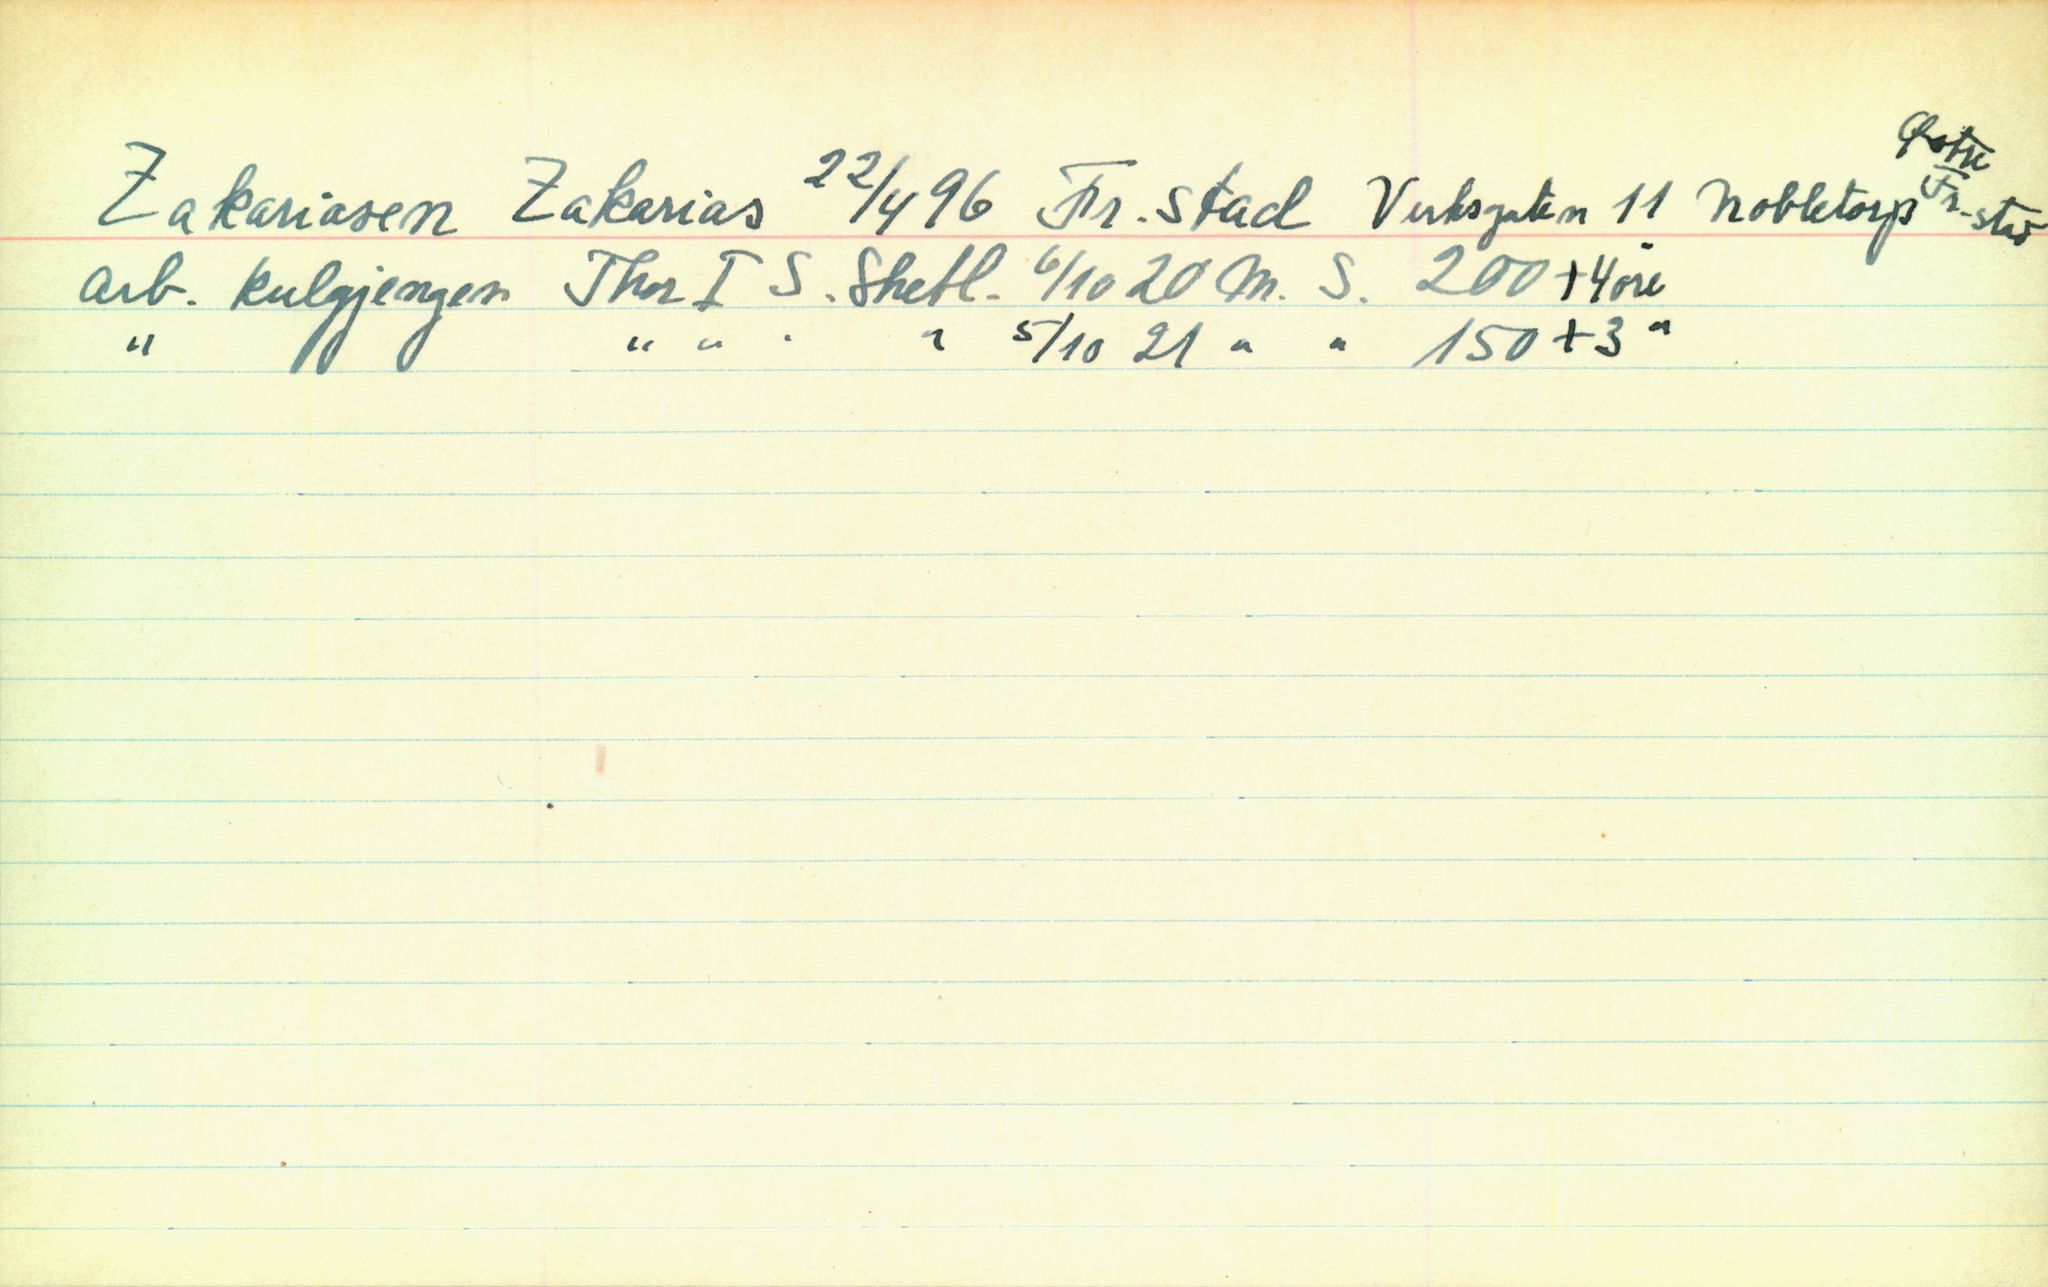 Zakariasen Zakarias 22/4 96 Fr.stad Verksgaten 11 Nobletorp Østre Fr.stad
arb. kulgjengen Thor I S. Shetl. 6/10 20 M. S. 200 + 4 öre
" " " " " 5/10 21 " " 150 + 3 "